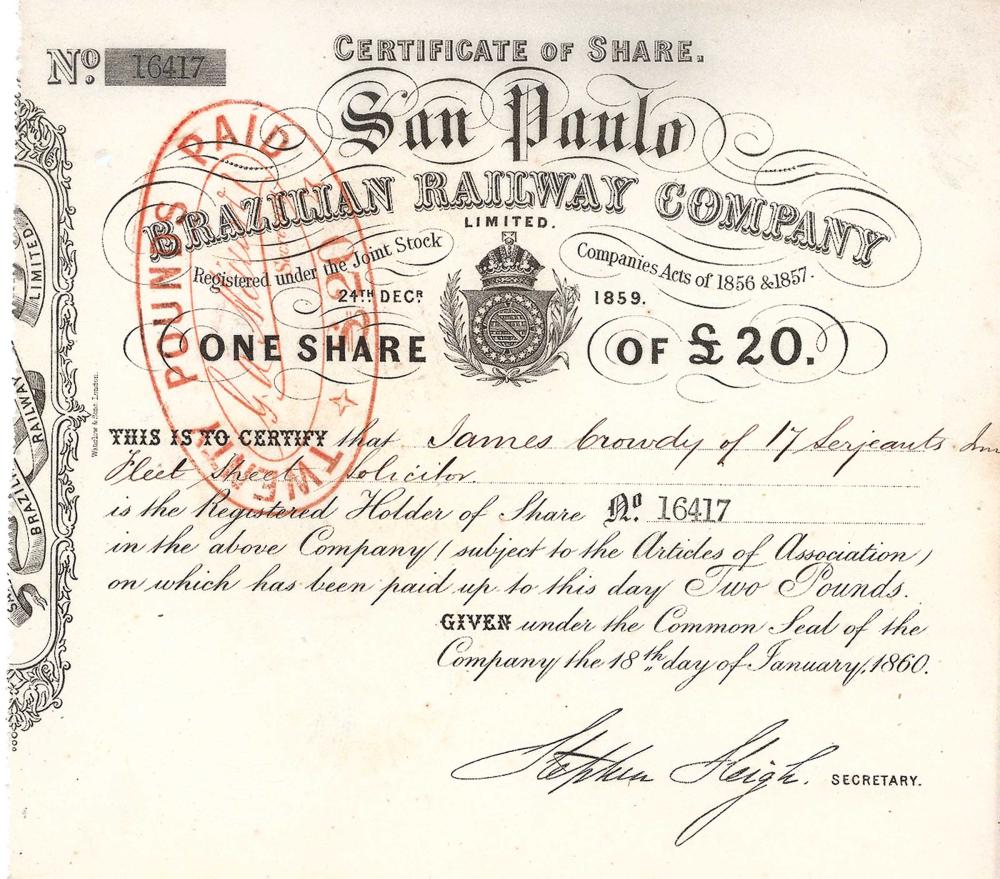 No. 16417
CERTIFICATE OF SHARE.
San Paulo
BRAZILIAN RAILWAY COMPANY
LIMITED.
Registered under the Joint Stock Companies Acts of 1856 & 1857.
24TH DECR 1859.
ONE SHARE OF £20.
TWENTY POUNDS PAID
£20
THIS IS TO CERTIFY that James Crowdy of 17 Serjeants Inn
Fleet Street Solicitor
is the Registered Holder of Share No. 16417
in the above Company (subject to the Articles of Association)
on which has been paid up to this day Two Pounds.
GIVEN under the Common Seal of the
Company the 18th day of January, 1860.
Stephen Sleigh. SECRETARY.
LIMITED.
RAILWAY
BRAZIL